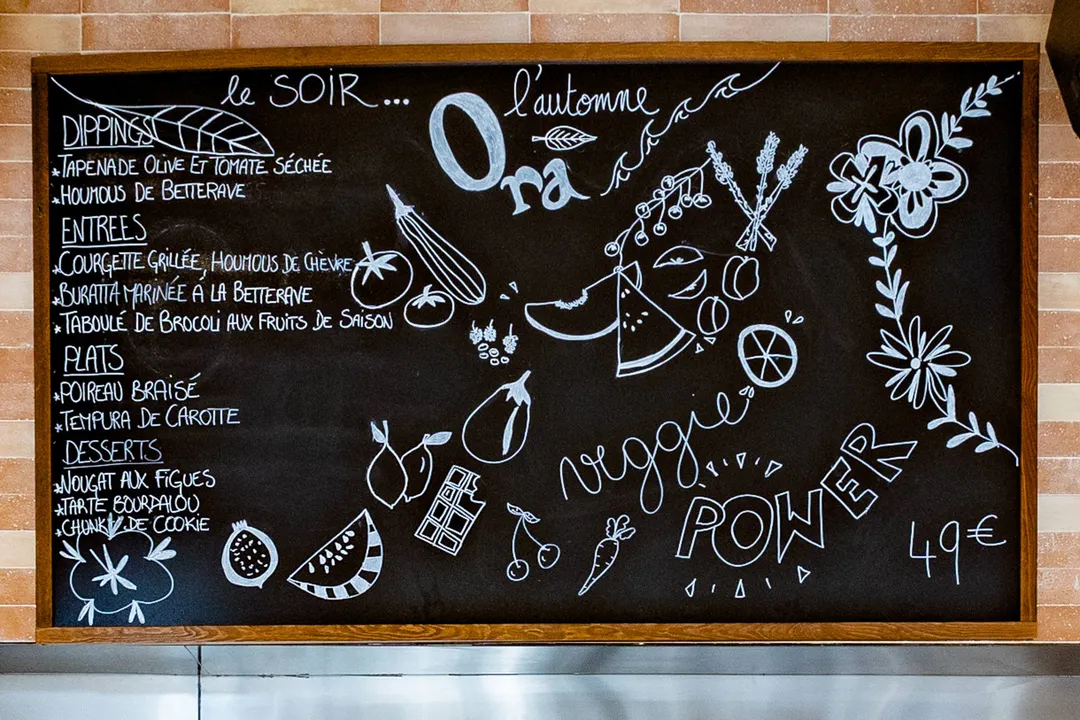 le SOIR...
DIPPINGS
*TAPENADE OLIVE ET TOMATE SÉCHÉE
*HOUMOUS DE BETTERAVE
ENTREES
*COURGETTE GRILLÉE, HOUMOUS DE CHÈVRE
*BURATTA MARINÉE À LA BETTERAVE
*TABOULÉ DE BROCOLI AUX FRUITS DE SAISON
PLATS
*POIREAU BRAISÉ
*TEMPURA DE CAROTTE
DESSERTS
*NOUGAT AUX FIGUES
*TARTE BOURDALOU
*CHUNKY DE COOKIE
l'automne
Ora
veggie
POWER
49€